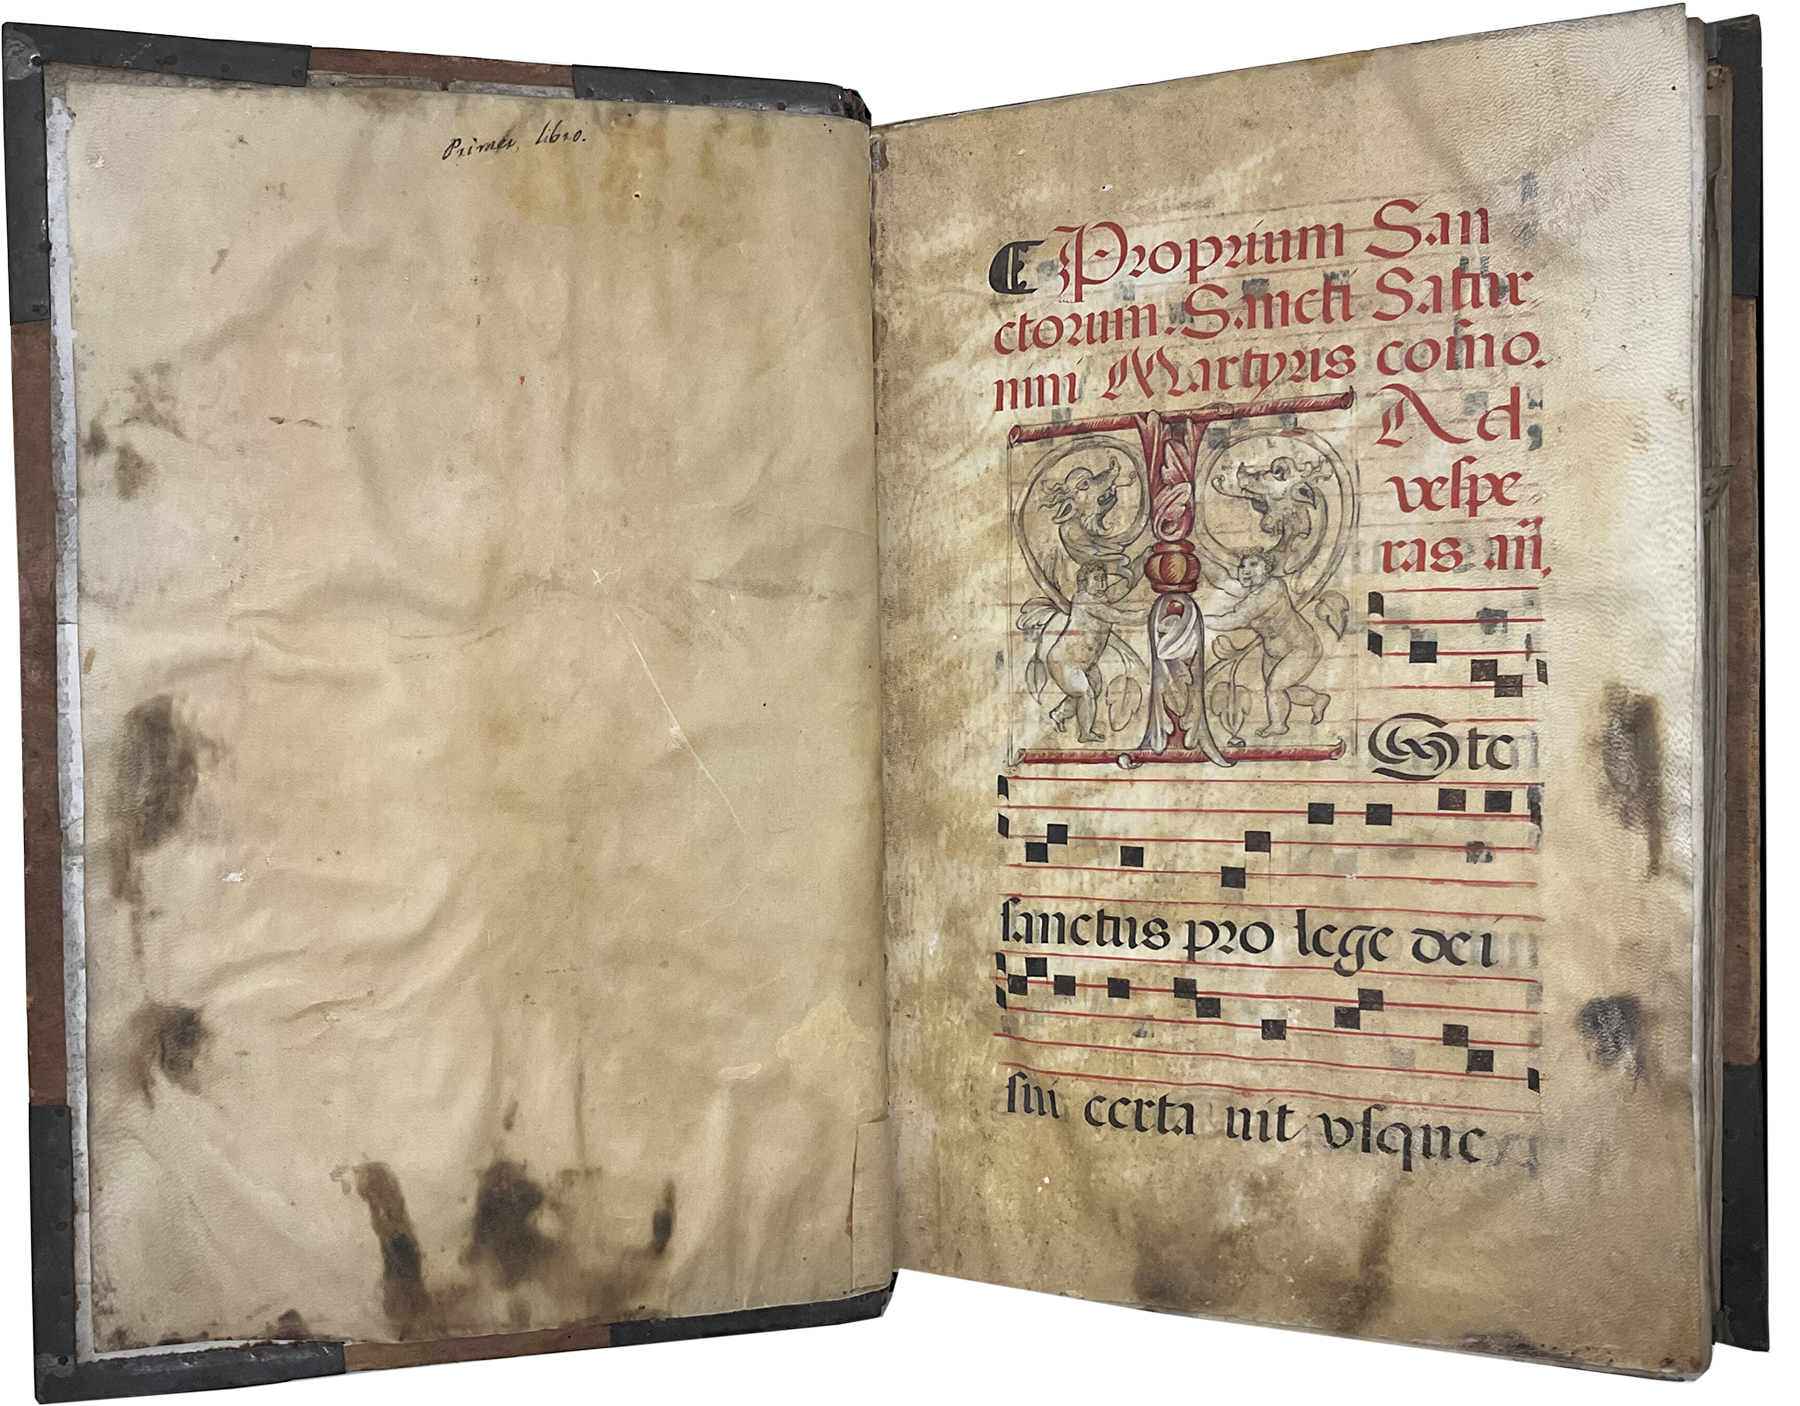 Primer libro.
¶ Proprium San
ctorum. Sancti Satur
nini Martyris com̃o.
Ad
veſpe-
ras añ.
I Ste
ſanctus pro lege dei
ſui certa uit vſque